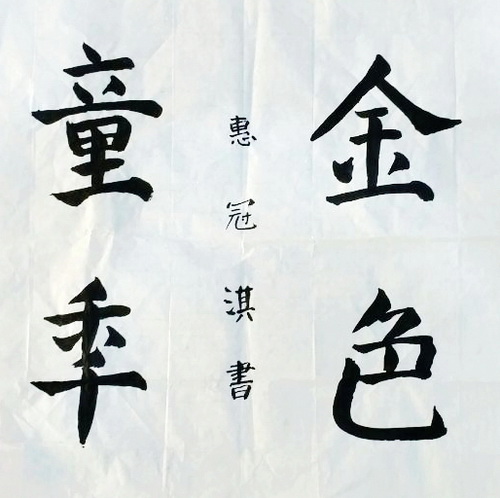 金色
童年
惠冠淇書